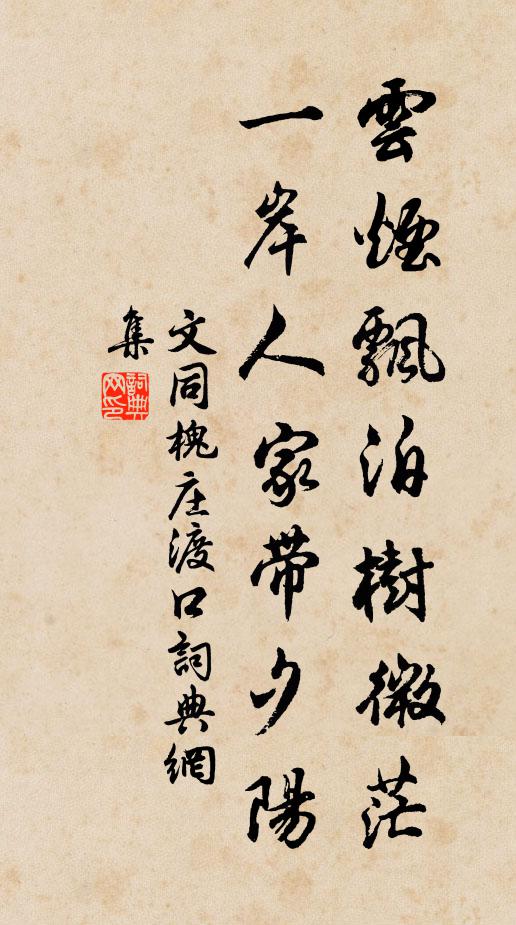 雲煙飄泊樹微茫
一岸人家帶夕陽
文同槐庄渡口詞典網
集
詞典
網印